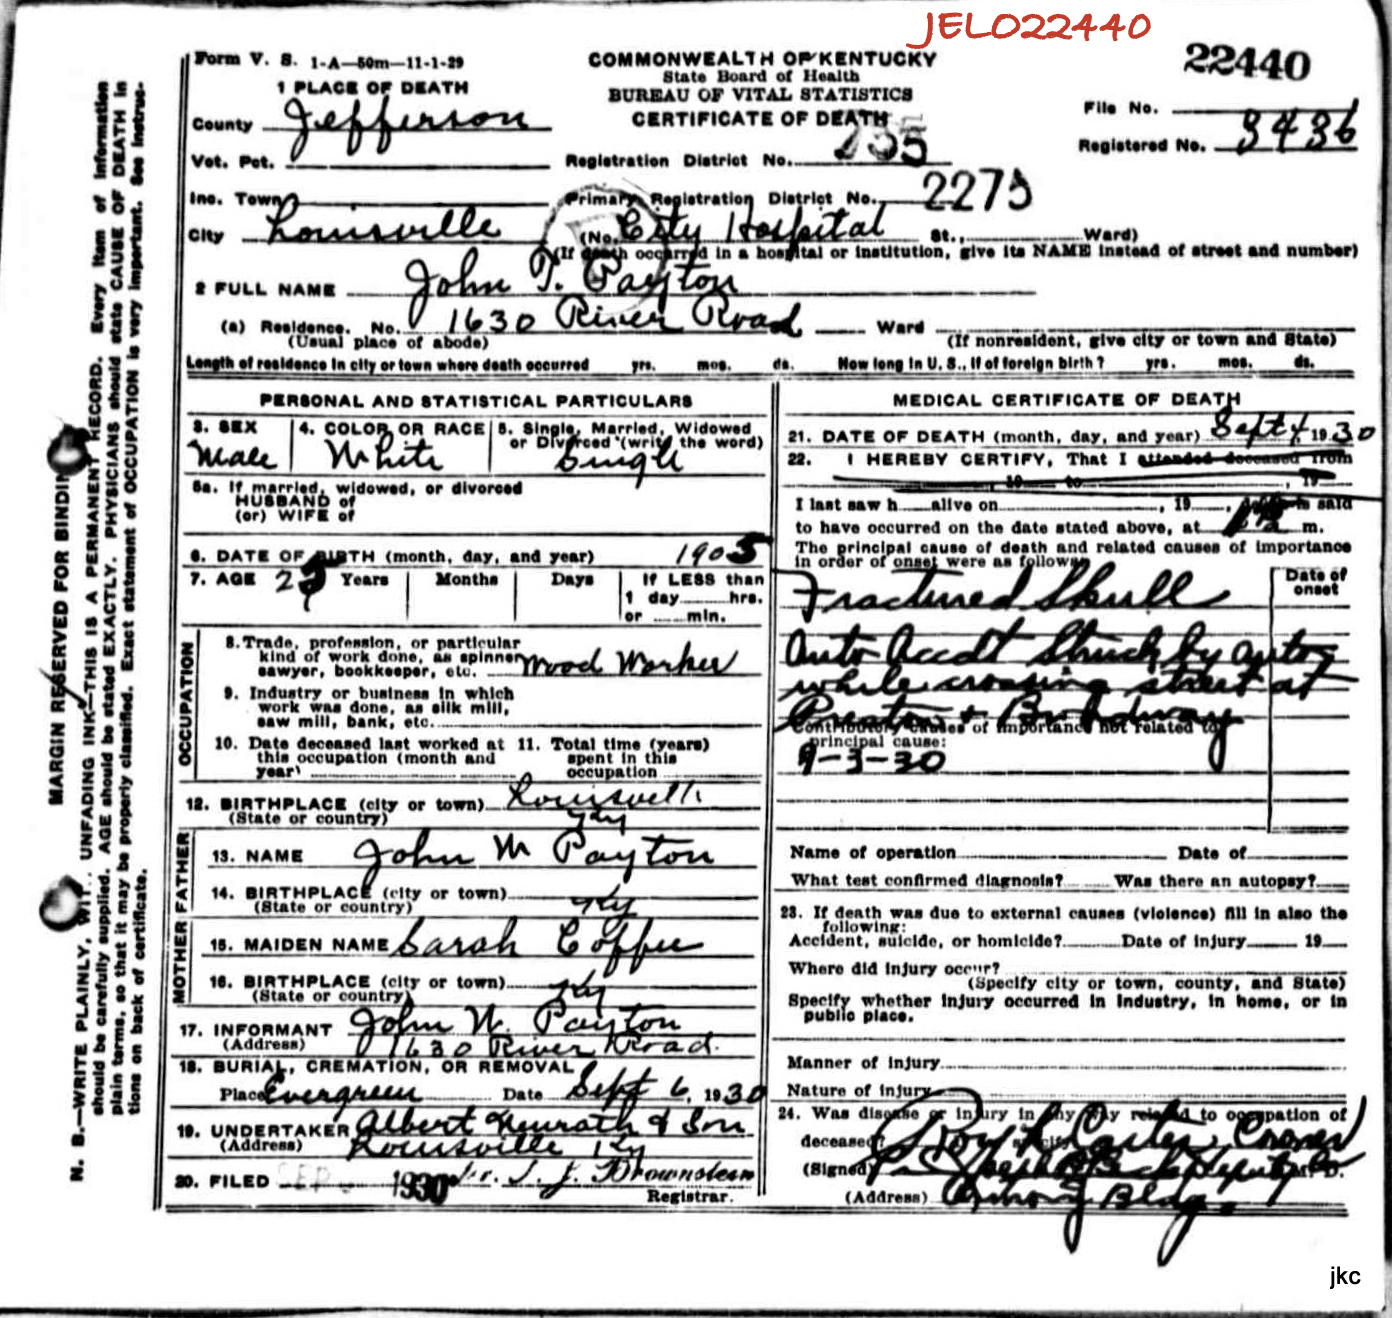 JELO22440
22440
Form V. S. 1-A—50m—11-1-29
COMMONWEALTH OF KENTUCKY
State Board of Health
BUREAU OF VITAL STATISTICS
CERTIFICATE OF DEATH
1 PLACE OF DEATH
County Jefferson
File No.
Registered No. 3436
Vot. Pct.
Registration District No. 755
Inc. Town
Primary Registration District No. 2275
City Louisville (No. City Hospital St., Ward)
(If death occurred in a hospital or institution, give its NAME instead of street and number)
2 FULL NAME John T. Payton
(a) Residence. No. 1630 River Road Ward
(Usual place of abode) (If nonresident, give city or town and State)
Length of residence in city or town where death occurred yrs. mos. ds. How long in U. S., if of foreign birth? yrs. mos. ds.
PERSONAL AND STATISTICAL PARTICULARS
3. SEX 4. COLOR OR RACE 5. Single, Married, Widowed
or Divorced (write the word)
Male White Single
5a. If married, widowed, or divorced
HUSBAND of
(or) WIFE of
6. DATE OF BIRTH (month, day, and year) 1905
7. AGE 25 Years Months Days If LESS than
1 day hrs.
or min.
OCCUPATION
8. Trade, profession, or particular
kind of work done, as spinner
sawyer, bookkeeper, etc. Wood Worker
9. Industry or business in which
work was done, as silk mill,
saw mill, bank, etc.
10. Date deceased last worked at 11. Total time (years)
this occupation (month and spent in this
year) occupation
12. BIRTHPLACE (city or town) Louisville
(State or country) Ky
FATHER
13. NAME John M Payton
14. BIRTHPLACE (city or town)
(State or country) Ky
MOTHER
15. MAIDEN NAME Sarah Coffee
16. BIRTHPLACE (city or town)
(State or country) Ky
17. INFORMANT John W. Payton
(Address) 1630 River Road
18. BURIAL, CREMATION, OR REMOVAL
Place Evergreen Date Sept 6, 1930
19. UNDERTAKER Albert Neurath & Son
(Address) Louisville Ky
20. FILED SEP 1930 Dr. J. J. Brownstein
Registrar.
MEDICAL CERTIFICATE OF DEATH
21. DATE OF DEATH (month, day, and year) Sept 4 1930
22. I HEREBY CERTIFY, That I attended deceased from
, 19 to , 19
I last saw h alive on , 19 , death is said
to have occurred on the date stated above, at m.
The principal cause of death and related causes of importance
in order of onset were as follows:
Date of
onset
Fractured Skull
Auto Accdt Struck by auto
while crossing street at
Preston + Broadway
Contributory causes of importance not related to
principal cause:
9-3-30
Name of operation Date of
What test confirmed diagnosis? Was there an autopsy?
23. If death was due to external causes (violence) fill in also the
following:
Accident, suicide, or homicide? Date of injury 19
Where did injury occur?
(Specify city or town, county, and State)
Specify whether injury occurred in industry, in home, or in
public place.
Manner of injury
Nature of injury
24. Was disease or injury in any way related to occupation of
deceased? Roy L Carter Coroner
(Signed) Deputy M. D.
(Address) Armory Bldg.
MARGIN RESERVED FOR BINDING
N. B.—WRITE PLAINLY, WITH UNFADING INK—THIS IS A PERMANENT RECORD. Every item of information
should be carefully supplied. AGE should be stated EXACTLY. PHYSICIANS should state CAUSE OF DEATH in
plain terms, so that it may be properly classified. Exact statement of OCCUPATION is very important. See instruc-
tions on back of certificate.
jkc